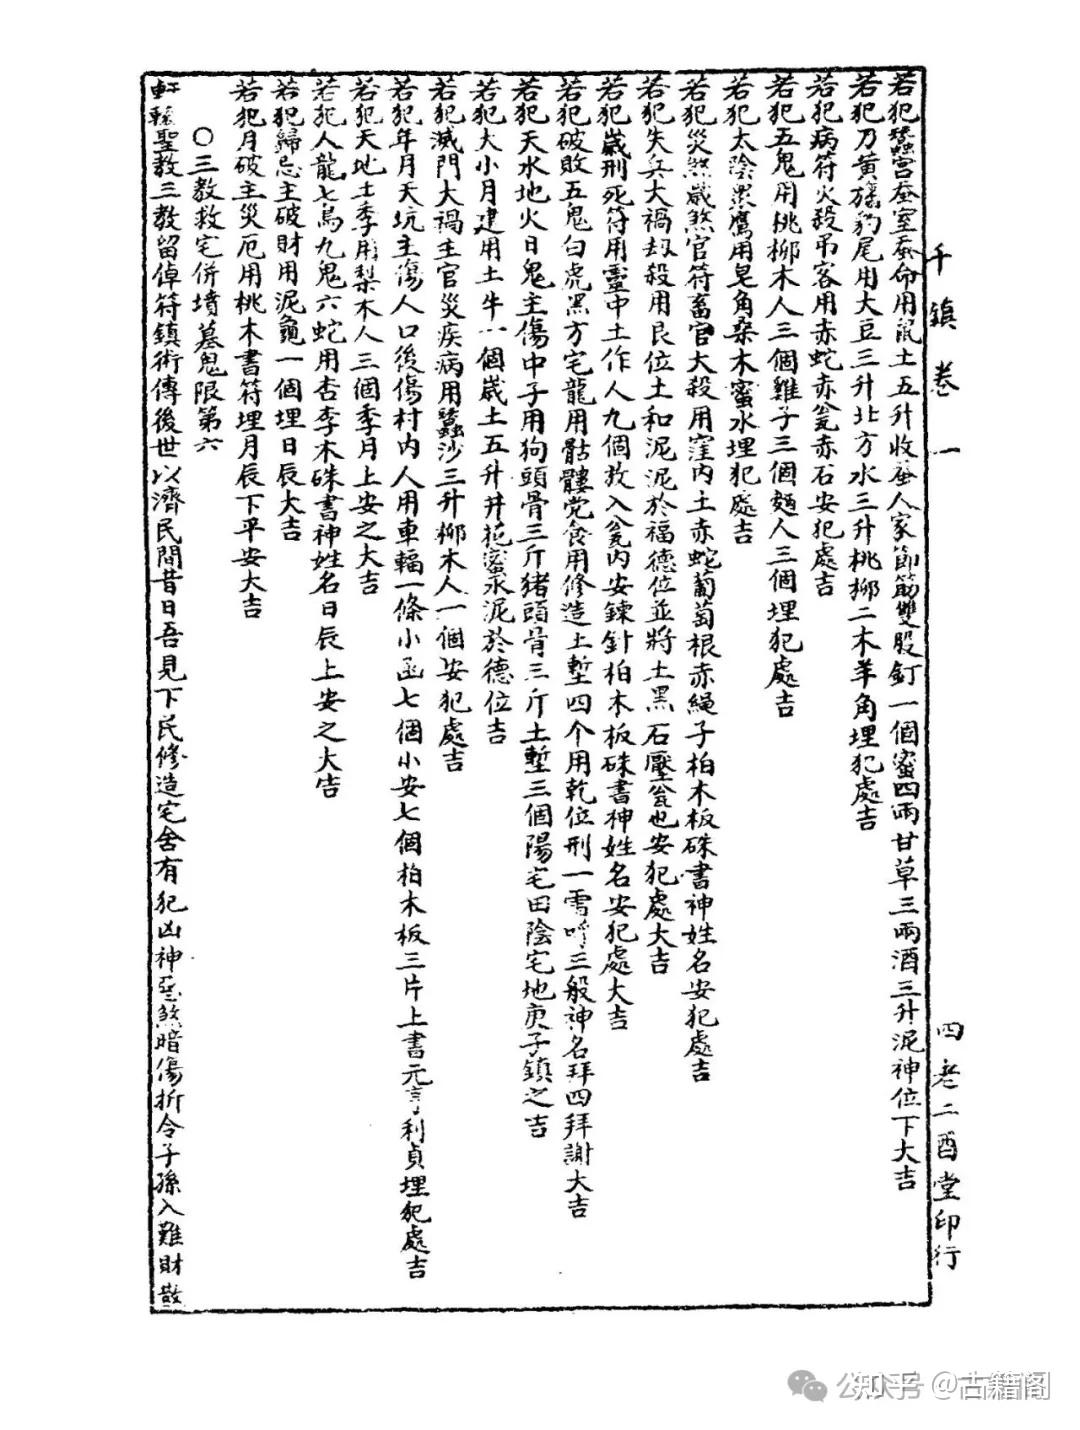 千鎮卷一
四老二酉堂印行
若犯蠶官蚕室蚕命用鼠土五升收蚕人家節筋雙股釘一個蜜四兩甘草三兩酒三升泥神位下大吉
若犯乃黃旛豹尾用大豆三升北方水三升桃柳二木羊角埋犯處吉
若犯病符火殺吊客用赤蛇赤瓮赤石安犯處吉
若犯五鬼用桃柳木人三個雞子三個麵人三個埋犯處吉
若犯太陰黑鷹用皂角桑木蜜水埋犯處吉
若犯災煞歲煞官符畜官大殺用窪內土赤蛇葡萄根赤繩子柏木板硃書神姓名安犯處吉
若犯失兵大禍刼殺用良位土和泥泥於福德位並將土黑石壓瓮也安犯處大吉
若犯歲刑死符用靈中土作人九個放入瓮內安鍊針柏木板硃書神姓名安犯處大吉
若犯破敗五鬼白虎黑方宅龍用骷髏党食用修造土塹四个用乾位刑一需呼三般神名拜四拜謝大吉
若犯天水地火日鬼主傷中子用狗頭骨三斤猪頭骨三斤土塹三個陽宅田陰宅地庚子鎮之吉
若犯大小月建用土牛一個歲土五升井花蜜水泥於德位吉
若犯滅門大禍主官災疾病用蠶沙三升柳木人一個安犯處吉
若犯年月天坑主傷人口後傷村內人用車輻一條小函七個小安七個柏木板三片上書元亨利貞埋犯處吉
若犯天地土季用梨木人三個季月上安之大吉
若犯人龍七鳥九鬼六蛇用杏李木硃書神姓名日辰上安之大吉
若犯歸忌主破財用泥龜一個埋日辰大吉
若犯月破主災厄用桃木書符埋月辰下平安大吉
〇三教救宅併墳墓鬼限第六
軒轅聖教三教留倬符鎮術傳後世以濟民間昔日吾見下民修造宅舍有犯凶神惡煞暗傷折令子孫入難財散
公众号
知乎 @古籍阁